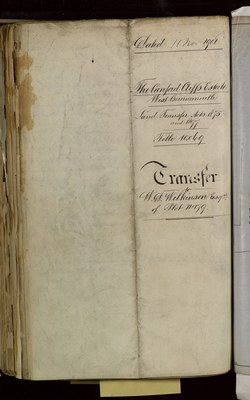 Dated 11 Nov 1901
The Canford Cliffs Estate
West Bournemouth
Land Transfer Acts 1875
and 1897
Title
Transfer
Wilkinson Esqre
of Plot